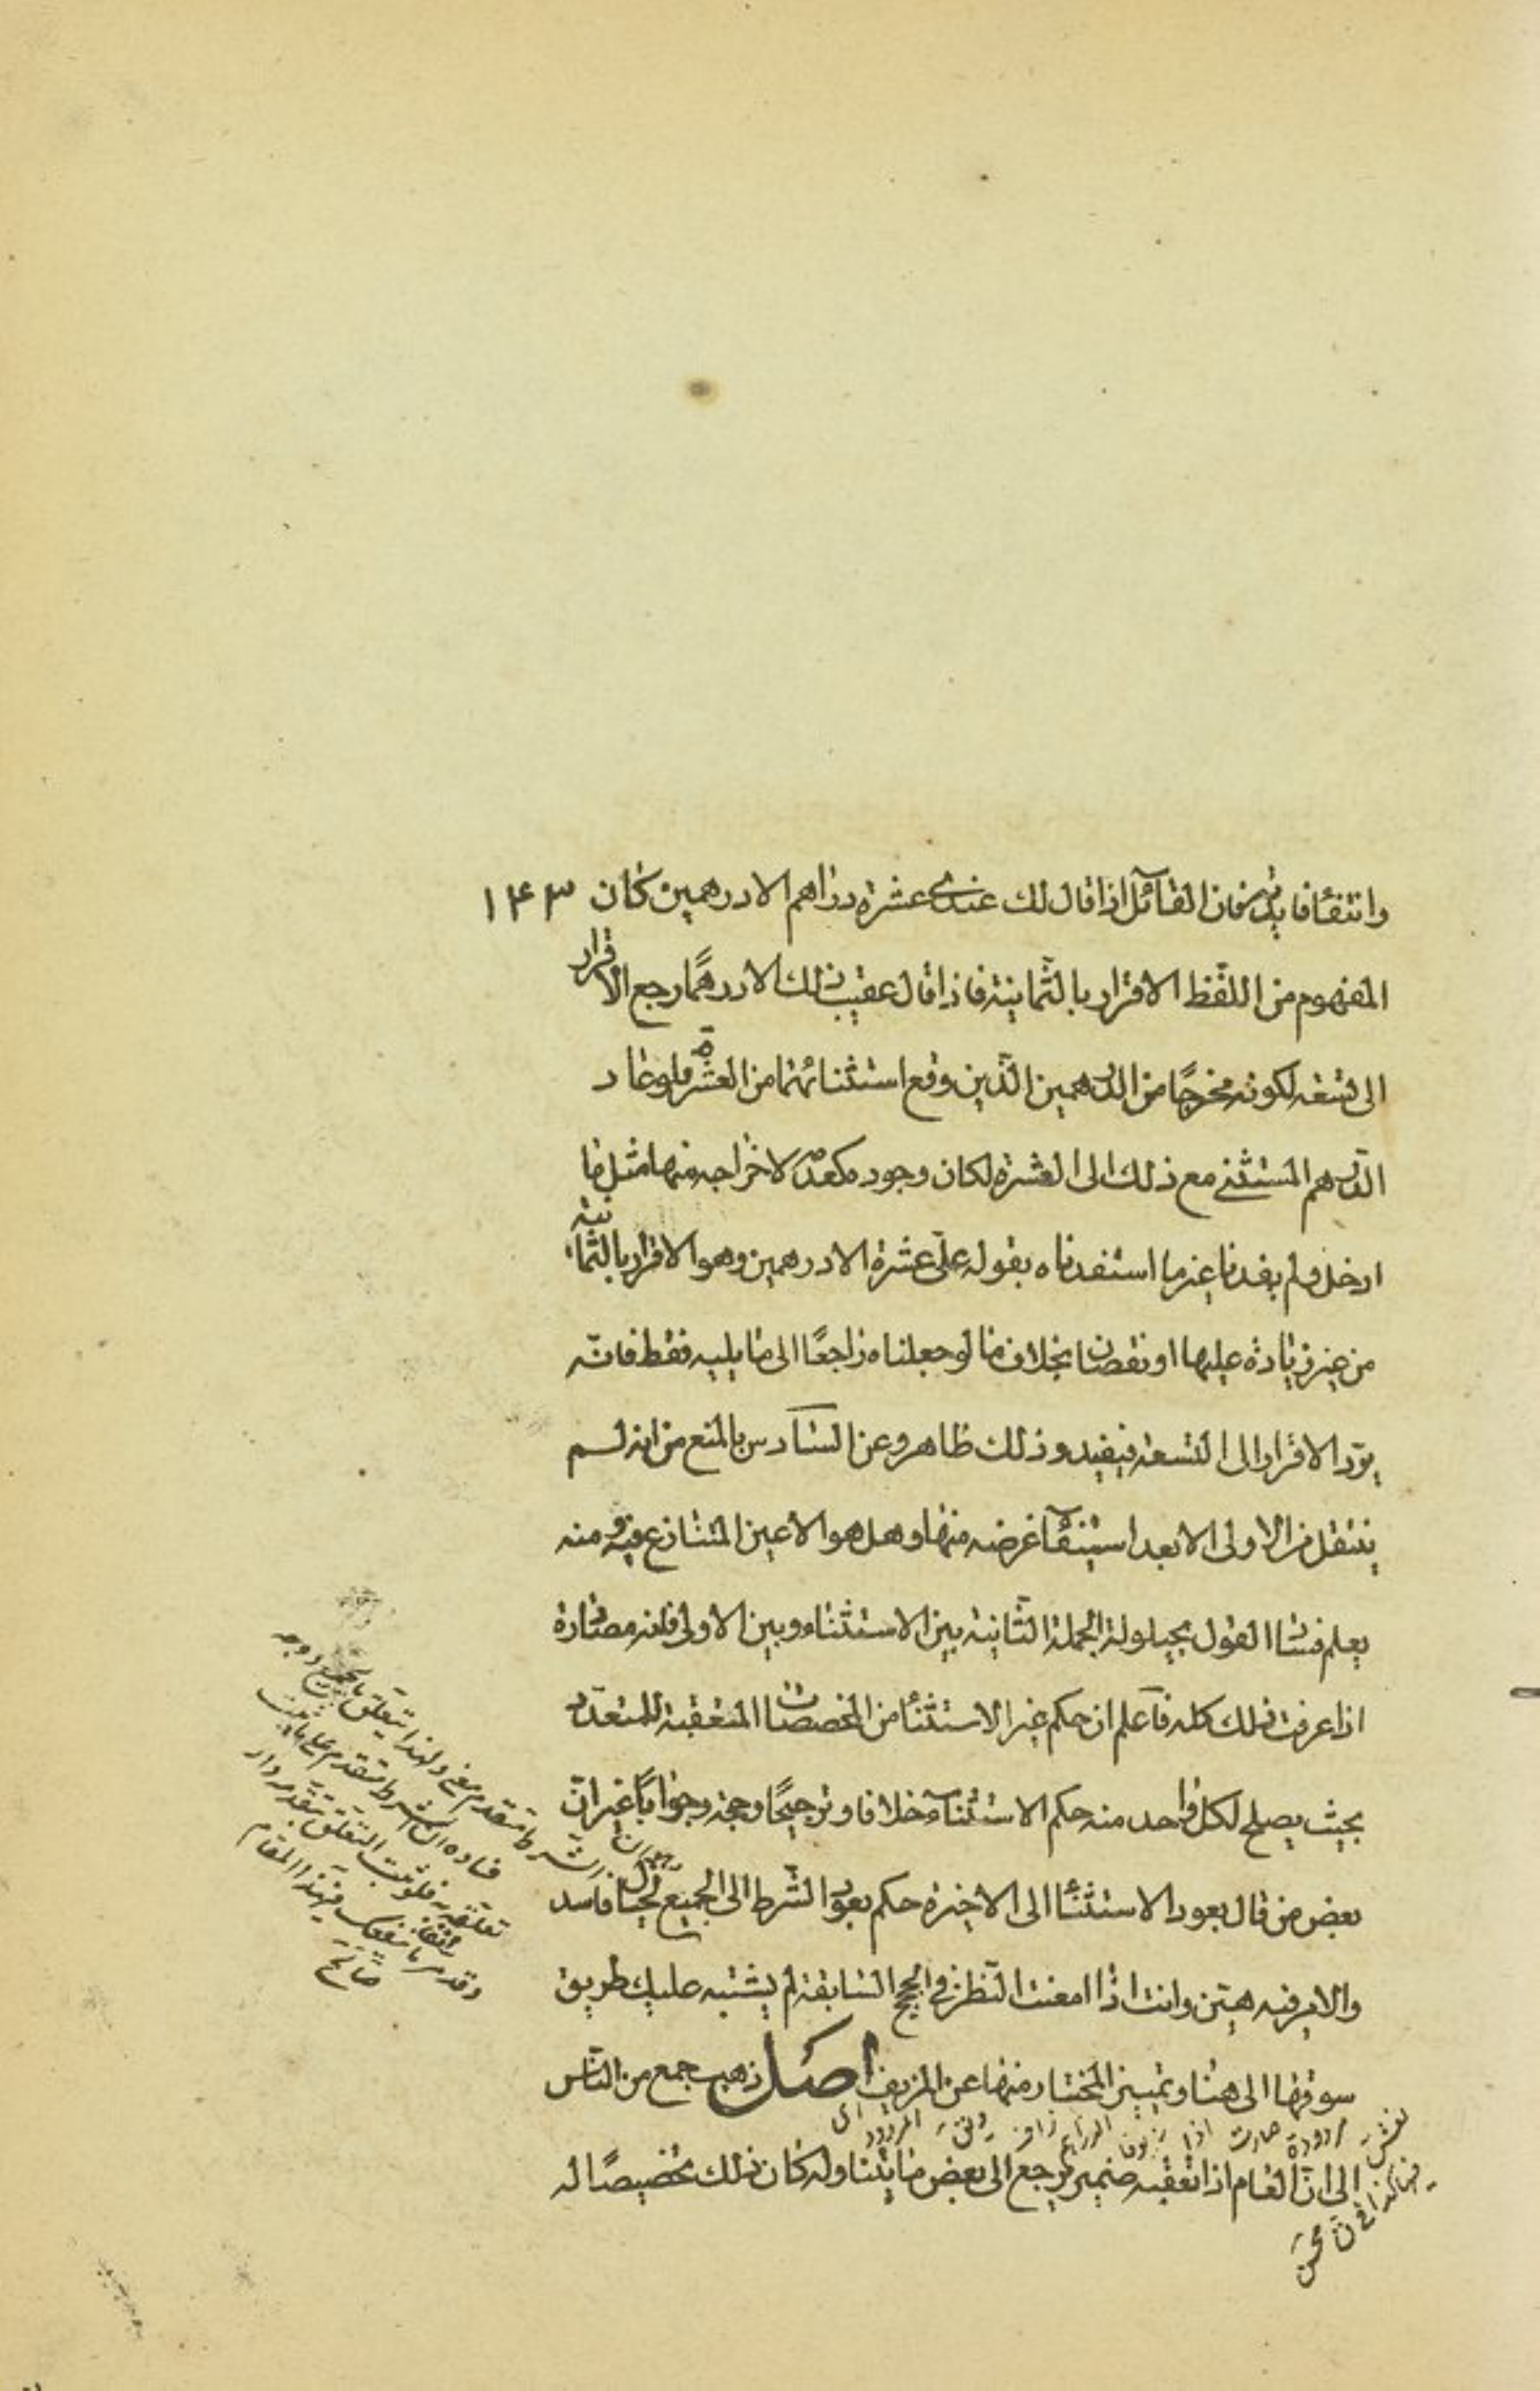 وانتفٔا فايدته فان القائل اذا قال لك عندى عشرة دراهم الا درهمين كان ١٤٣
المفهوم من اللفظ الاقرار بالثمانية فاذا قال عقيب ذلك الا درهمًا رجع الاقرار
الى تسعة لكونه مخرجًا من الدرهمين الذين وقع استثنائهما من العشرة فلو عاد
الدرهم المستثنى مع ذلك الى العشرة لكان وجوده كعدمه لاخراجه منها مثل ما
ادخل فلم يفدنا غير ما استفدناه بقوله علىّ عشرة الا درهمين وهو الاقرار بالثمانية
من غير زيادة عليها او نقصان بخلاف ما لو جعلناه راجعًا الى ما يليه فقط فانّه
يردّ الاقرار الى التسعة فيفيد وذلك ظاهر وعن السادس بالمنع من انه لم
ينتقل من الاولى الا بعد استيفآء غرضه منها وهل هو الا عين المتنازع فيه ومنه
يعلم فساد القول بحيلولة الجملة الثانية بين الاستثناء وبين الاولى فانه مصادرة
اذا عرفت ذلك كله فاعلم ان حكم غير الاستثنٔا من المخصصات المتعقبة للمتعدد
بحيث يصلح لكل واحد منه حكم الاستثنآء خلافا وترجيحًا وحجة وجوابًا غير انّ
بعض من قال بعود الاستثنٔا الى الاخيرة حكم بعود الشرط الى الجميع لخيال فاسد
والامر فيه هيّن وانت اذا امعنت النّظر فى الحجج السابقة لم يشتبه عليك طريق
سوقها الى هنا وتمييز المختار منها عن المزيف اصل ذهب جمع من النّاس
الى ان العام اذا تعقبه ضمير يرجع الى بعض ما يتناوله كان ذلك تخصيصًا له